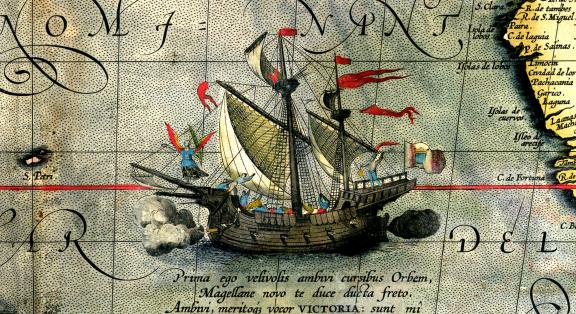 NOMI-
NANT
S. Clara
R. de tambos
R. de S. Miguel
Isola de lobos
Paira.
C. de laguia
P. de Saunas.
Isolas de lobos
Limocin
Ciudad de los
Pachacania
Garico.
Laguna
Isolas de cuervos
Isleo de arecife
S. Petri
C. de Fortuna
AR
DEL
Prima ego velivolis ambivi cursibus Orbem,
Magellane novo te duce ducta freto.
Ambivi, meritoq; vocor VICTORIA: sunt mi